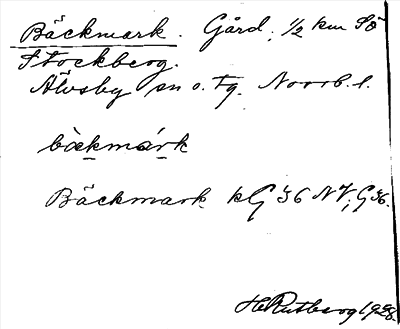 Bäckmark. Gård, 1/2 km SÖ
Stockberg.
Älvsby sn o. tg. Norrb. l.
bäkmárk
Bäckmark kG 36 NV; G 36.
H. Rutberg 1928.